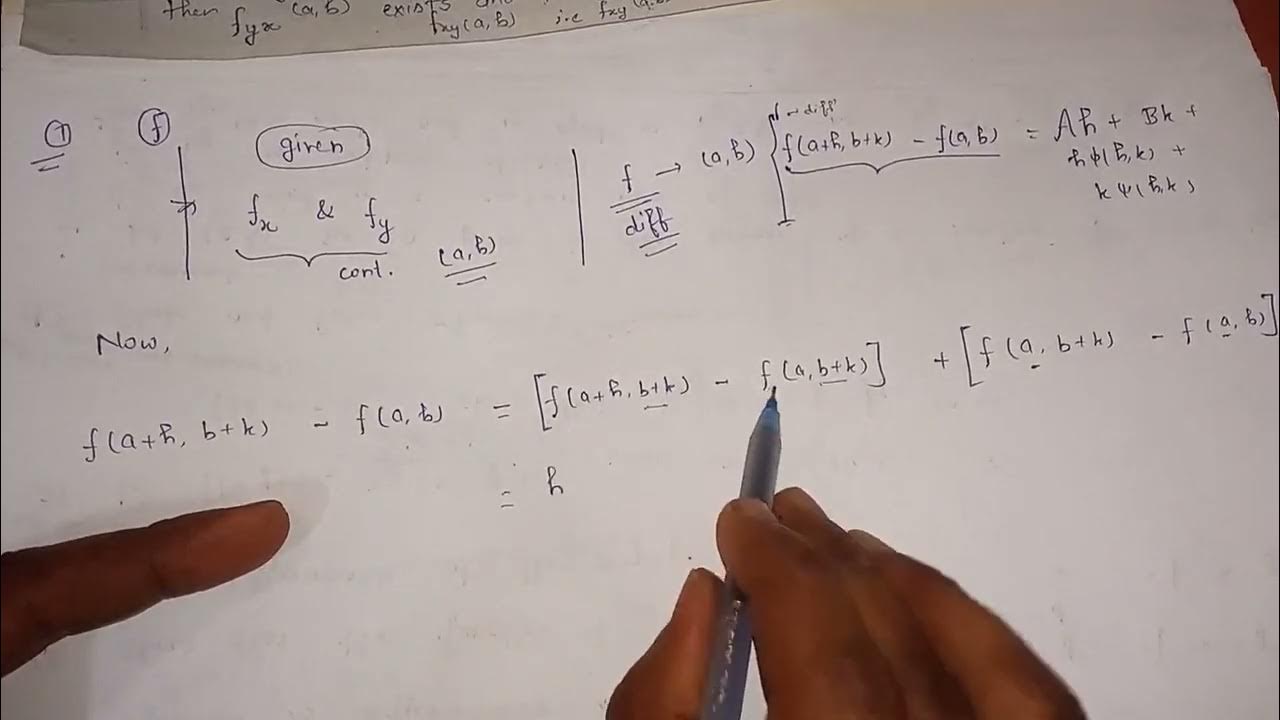 then f_yx (a,b) exists
f_xy(a,b) i.e f_xy(a,b)
① ⓕ given
f_x & f_y
cont. (a,b)
f → (a,b)
diff
diff
f(a+h, b+k) - f(a,b) = Ah + Bk +
hφ(h,k) +
kψ(h,k)
Now,
f(a+h, b+k) - f(a,b) = [f(a+h, b+k) - f(a, b+k)] + [f(a, b+k) - f(a,b)]
= h